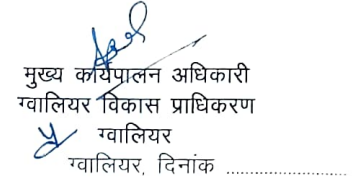 मुख्य कार्यपालन अधिकारी
ग्वालियर विकास प्राधिकरण
ग्वालियर
ग्वालियर, दिनांक ........................